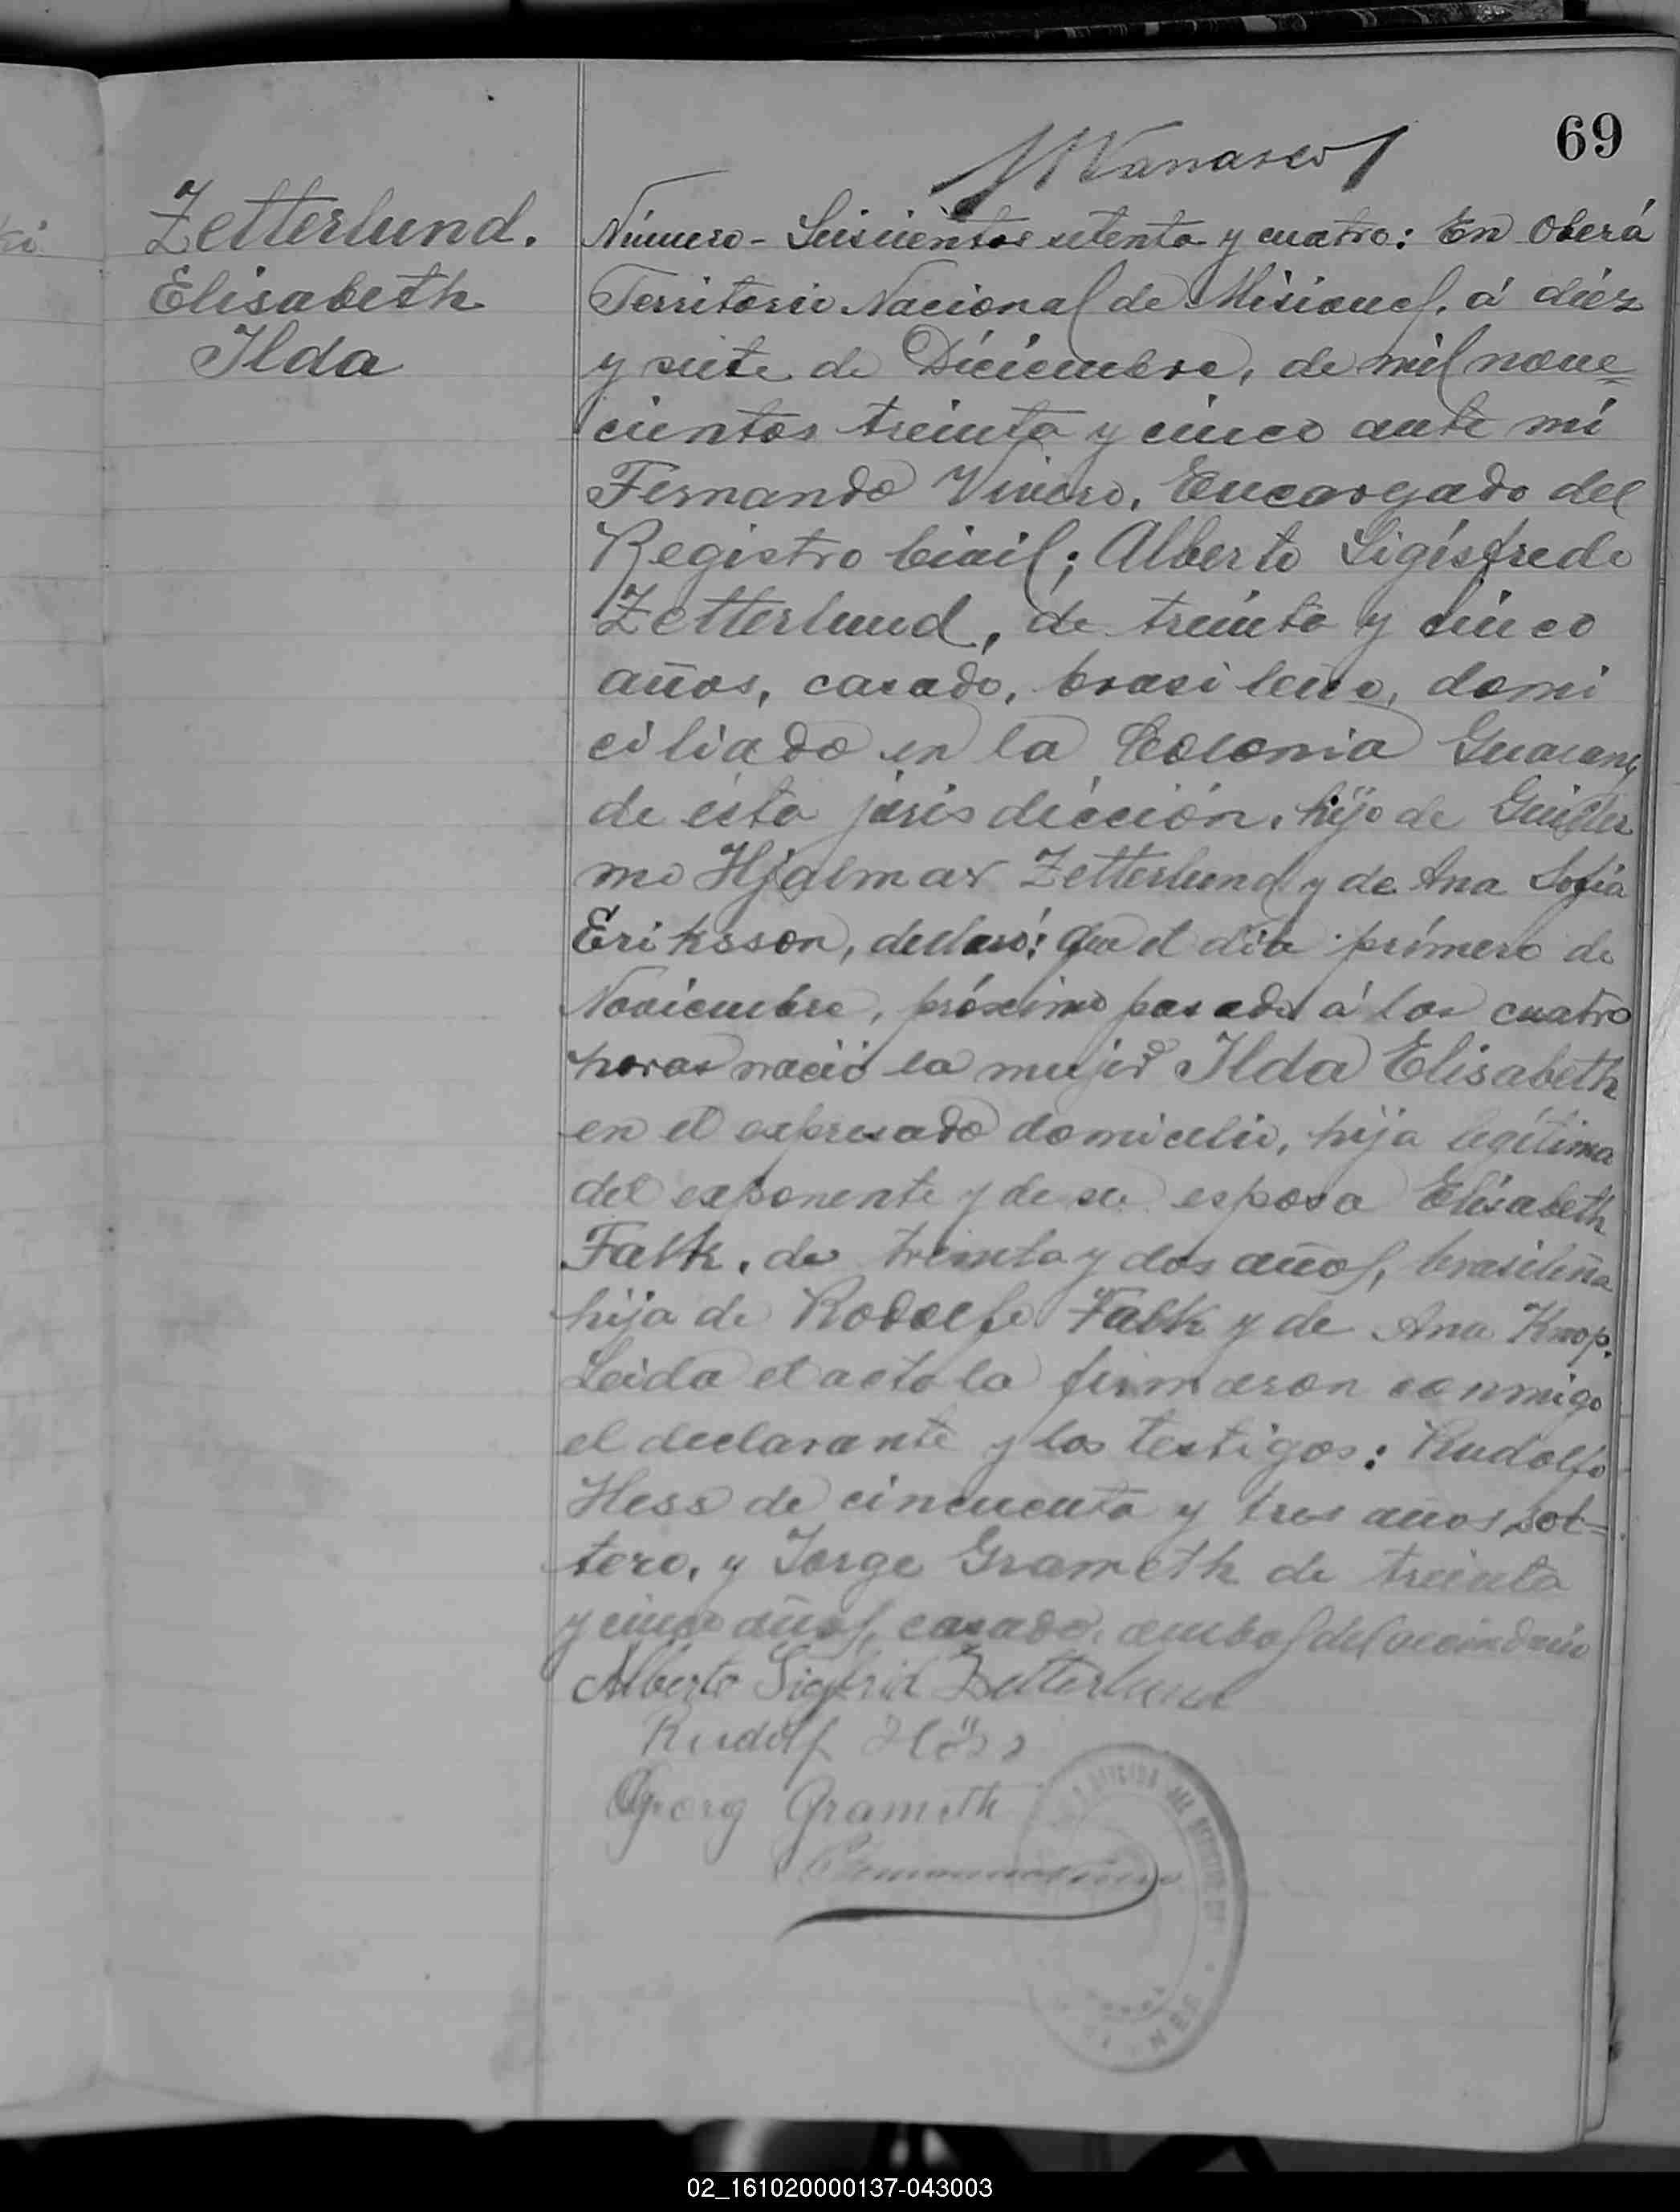 69
Zetterlund.
Elisabeth
Ilda
Número - Seiscientos setenta y cuatro: En Oberá
Territorio Nacional de Misiones, á diez
y siete de Diciembre, de mil nove=
cientos treinta y cinco ante mi
Fernando Vivero, Encargado del
Registro Civil; Alberto Sigisfredo
Zetterlund, de treinta y cinco
años, casado, brasileño, domi
ciliado en la Colonia Guarany
de ésta jurisdicción, hijo de Guiller
mo Hjalmar Zetterlund y de Ana Sofia
Eriksson, declaró: Que el día primero de
Noviembre, próximo pasado á las cuatro
horas nació la mujer Ilda Elisabeth
en el expresado domicilio, hija legítima
del exponente y de su esposa Elisabeth
Falk, de treinta y dos años, brasileña
hija de Rodolfo Falk y de Ana Knop.
Leida el acta la firmaron conmigo
el declarante y los testigos: Rudolfo
Hess de cincuenta y tres años, sol=
tero, y Jorge Grameth de treinta
y cinco años, casado, ambos del vecindario
Alberto Sigfrid Zetterlund
Rudolf Höss
Georg Grameth
02_161020000137-043003